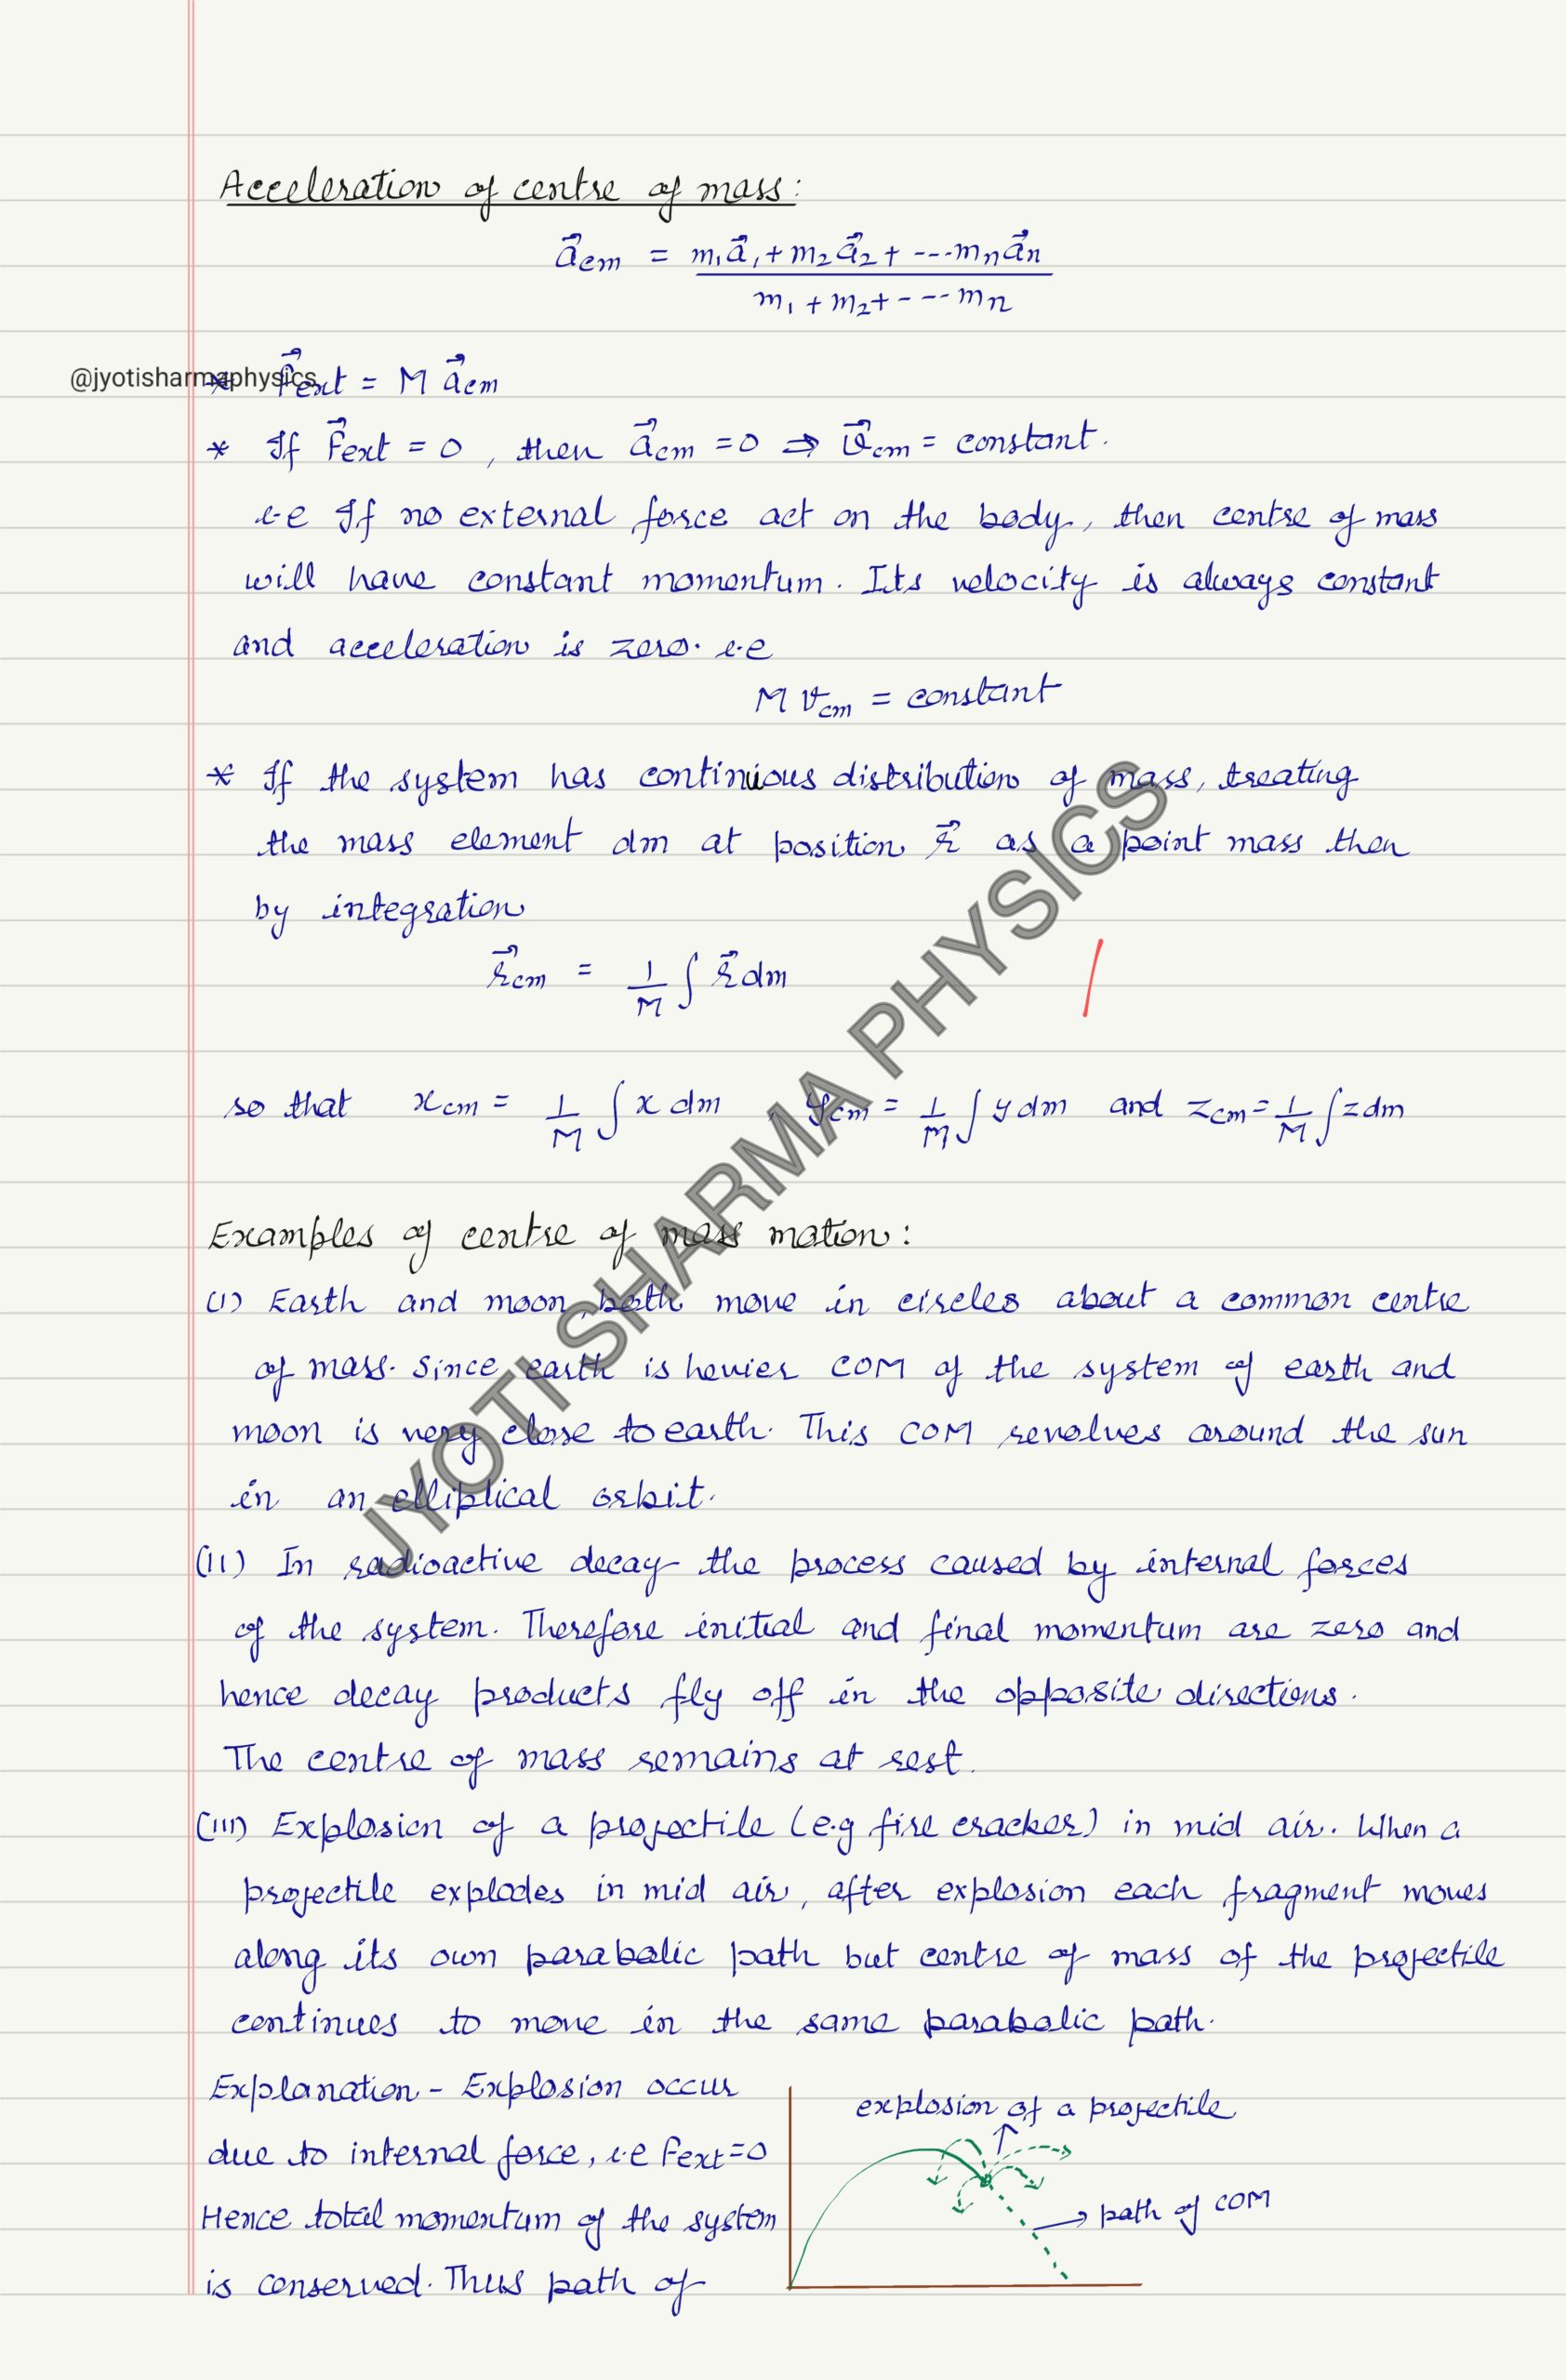 Acceleration of centre of mass:
a⃗cm = m₁a⃗₁ + m₂a⃗₂ + ---mₙa⃗n
m₁ + m₂ + - --- mₙ
@jyotisharmaphysics
* F⃗ext = M a⃗cm
* If F⃗ext = 0 , then a⃗cm = 0 ⇒ v⃗cm = constant.
i.e If no external force act on the body, then centre of mass
will have constant momentum. Its velocity is always constant
and acceleration is zero. i.e
M vcm = constant
* If the system has continious distribution of mass, treating
the mass element dm at position r⃗ as a point mass then
by integration
r⃗cm = 1/M ∫ r⃗ dm
so that xcm = 1/M ∫ x dm , ycm = 1/M ∫ y dm and zcm = 1/M ∫ z dm
Examples of centre of mass motion:
(1) Earth and moon, both move in circles about a common centre
of mass. Since earth is hevier COM of the system of earth and
moon is very close to earth. This COM revolves around the sun
in an elliptical orbit.
(11) In radioactive decay the process caused by internal forces
of the system. Therefore initial and final momentum are zero and
hence decay products fly off in the opposite directions.
The centre of mass remains at rest.
(111) Explosion of a projectile (e.g fire cracker) in mid air. When a
projectile explodes in mid air, after explosion each fragment moves
along its own parabolic path but centre of mass of the projectile
continues to move in the same parabolic path.
Explanation - Explosion occur
due to internal force, i.e Fext=0
Hence total momentum of the system
is conserved. Thus path of
explosion of a projectile
path of COM
JYOTI SHARMA PHYSICS